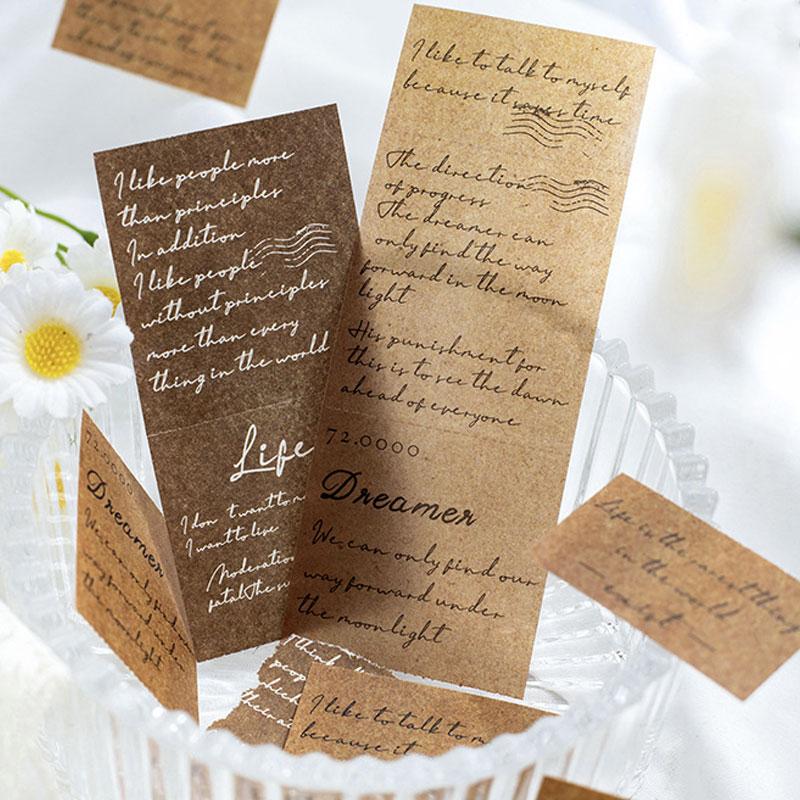 I like people more
than principles
In addition
I like people
without principles
more than every
thing in the world
Life
I don't want to
I want to live
Moderation
fatal The
I like to talk to myself
because it saves time
The direction
of progress
The dreamer can
only find the way
forward in the moon
light
His punishment for
this is to see the dawn
ahead of everyone
72.0000.
Dreamer
We can only find our
way forward under
the moonlight
72.0000.
Dreamer
We can only find
way forward under
the moonlight
Life in the
in the world
I think
I like to talk to
because it